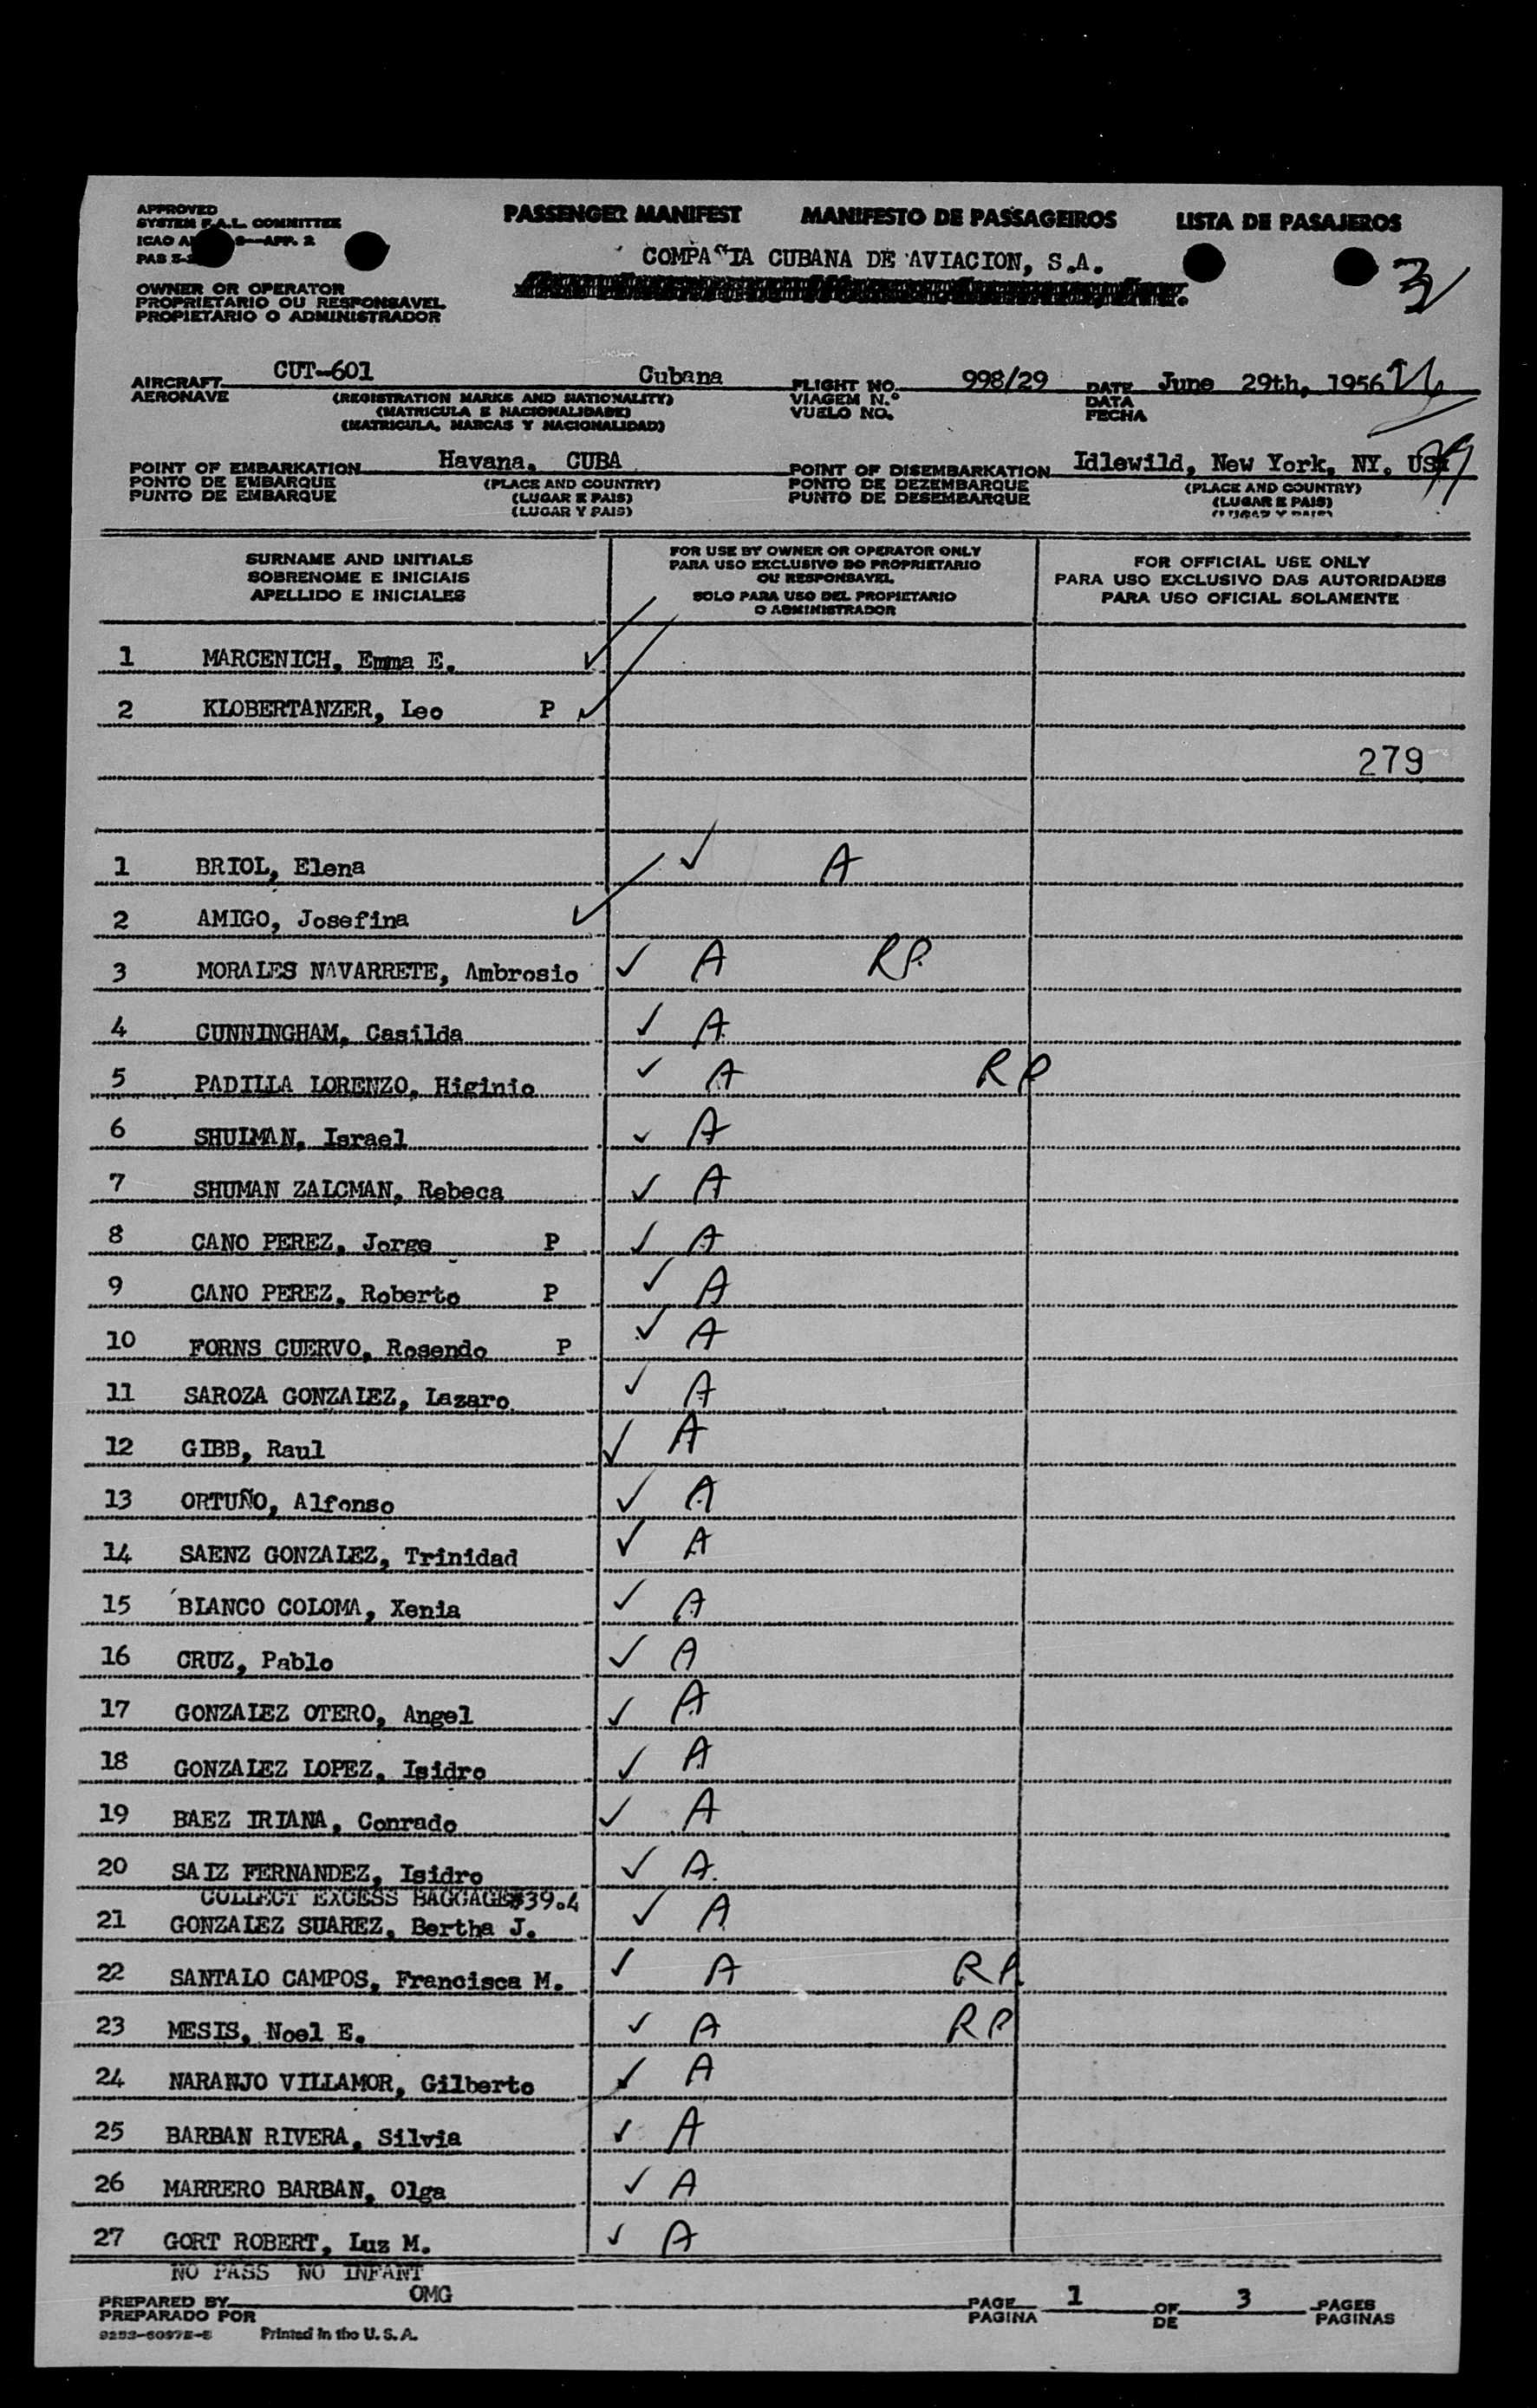 APPROVED
SYSTEM F.A.L. COMMITTEE
PASSENGER MANIFEST MANIFESTO DE PASSAGEIROS LISTA DE PASAJEROS
COMPAÑIA CUBANA DE AVIACION, S.A.
OWNER OR OPERATOR
PROPRIETARIO OU RESPONSAVEL
PROPIETARIO O ADMINISTRADOR
AIRCRAFT CUT-601 Cubana FLIGHT NO. 998/29 DATE June 29th, 1956
AERONAVE (REGISTRATION MARKS AND NATIONALITY) VIAGEM N.º DATA
(MATRICULA E NACIONALIDADE) VUELO NO. FECHA
(MATRICULA, MARCAS Y NACIONALIDAD)
POINT OF EMBARKATION Havana, CUBA POINT OF DISEMBARKATION Idlewild, New York, NY. USA
PONTO DE EMBARQUE (PLACE AND COUNTRY) PONTO DE DEZEMBARQUE (PLACE AND COUNTRY)
PUNTO DE EMBARQUE (LUGAR E PAIS) PUNTO DE DESEMBARQUE (LUGAR E PAIS)
(LUGAR Y PAIS) (LUGAR Y PAIS)
SURNAME AND INITIALS
SOBRENOME E INICIAIS
APELLIDO E INICIALES
FOR USE BY OWNER OR OPERATOR ONLY
PARA USO EXCLUSIVO DO PROPRIETARIO
OU RESPONSAVEL
SOLO PARA USO DEL PROPIETARIO
O ADMINISTRADOR
FOR OFFICIAL USE ONLY
PARA USO EXCLUSIVO DAS AUTORIDADES
PARA USO OFICIAL SOLAMENTE
1 MARCENICH, Emma E. ✓
2 KLOBERTANZER, Leo P ✓
279
1 BRIOL, Elena ✓ A
2 AMIGO, Josefina ✓
3 MORALES NAVARRETE, Ambrosio ✓ A RP
4 CUNNINGHAM, Casilda ✓ A
5 PADILLA LORENZO, Higinio ✓ A RP
6 SHULMAN, Israel ✓ A
7 SHUMAN ZALCMAN, Rebeca ✓ A
8 CANO PEREZ, Jorge P ✓ A
9 CANO PEREZ, Roberto P ✓ A
10 FORNS CUERVO, Rosendo P ✓ A
11 SAROZA GONZALEZ, Lazaro ✓ A
12 GIBB, Raul ✓ A
13 ORTUÑO, Alfonso ✓ A
14 SAENZ GONZALEZ, Trinidad ✓ A
15 BLANCO COLOMA, Xenia ✓ A
16 CRUZ, Pablo ✓ A
17 GONZALEZ OTERO, Angel ✓ A
18 GONZALEZ LOPEZ, Isidro ✓ A
19 BAEZ IRIANA, Conrado ✓ A
20 SAIZ FERNANDEZ, Isidro ✓ A
COLLECT EXCESS BAGGAGE$39.4
21 GONZALEZ SUAREZ, Bertha J. ✓ A
22 SANTALO CAMPOS, Francisca M. ✓ A RP
23 MESIS, Noel E. ✓ A RP
24 NARANJO VILLAMOR, Gilberto ✓ A
25 BARBAN RIVERA, Silvia ✓ A
26 MARRERO BARBAN, Olga ✓ A
27 GORT ROBERT, Luz M. ✓ A
NO PASS NO INFANT
PREPARED BY OMG PAGE 1 OF 3 PAGES
PREPARADO POR PAGINA DE PAGINAS
Printed in the U.S.A.